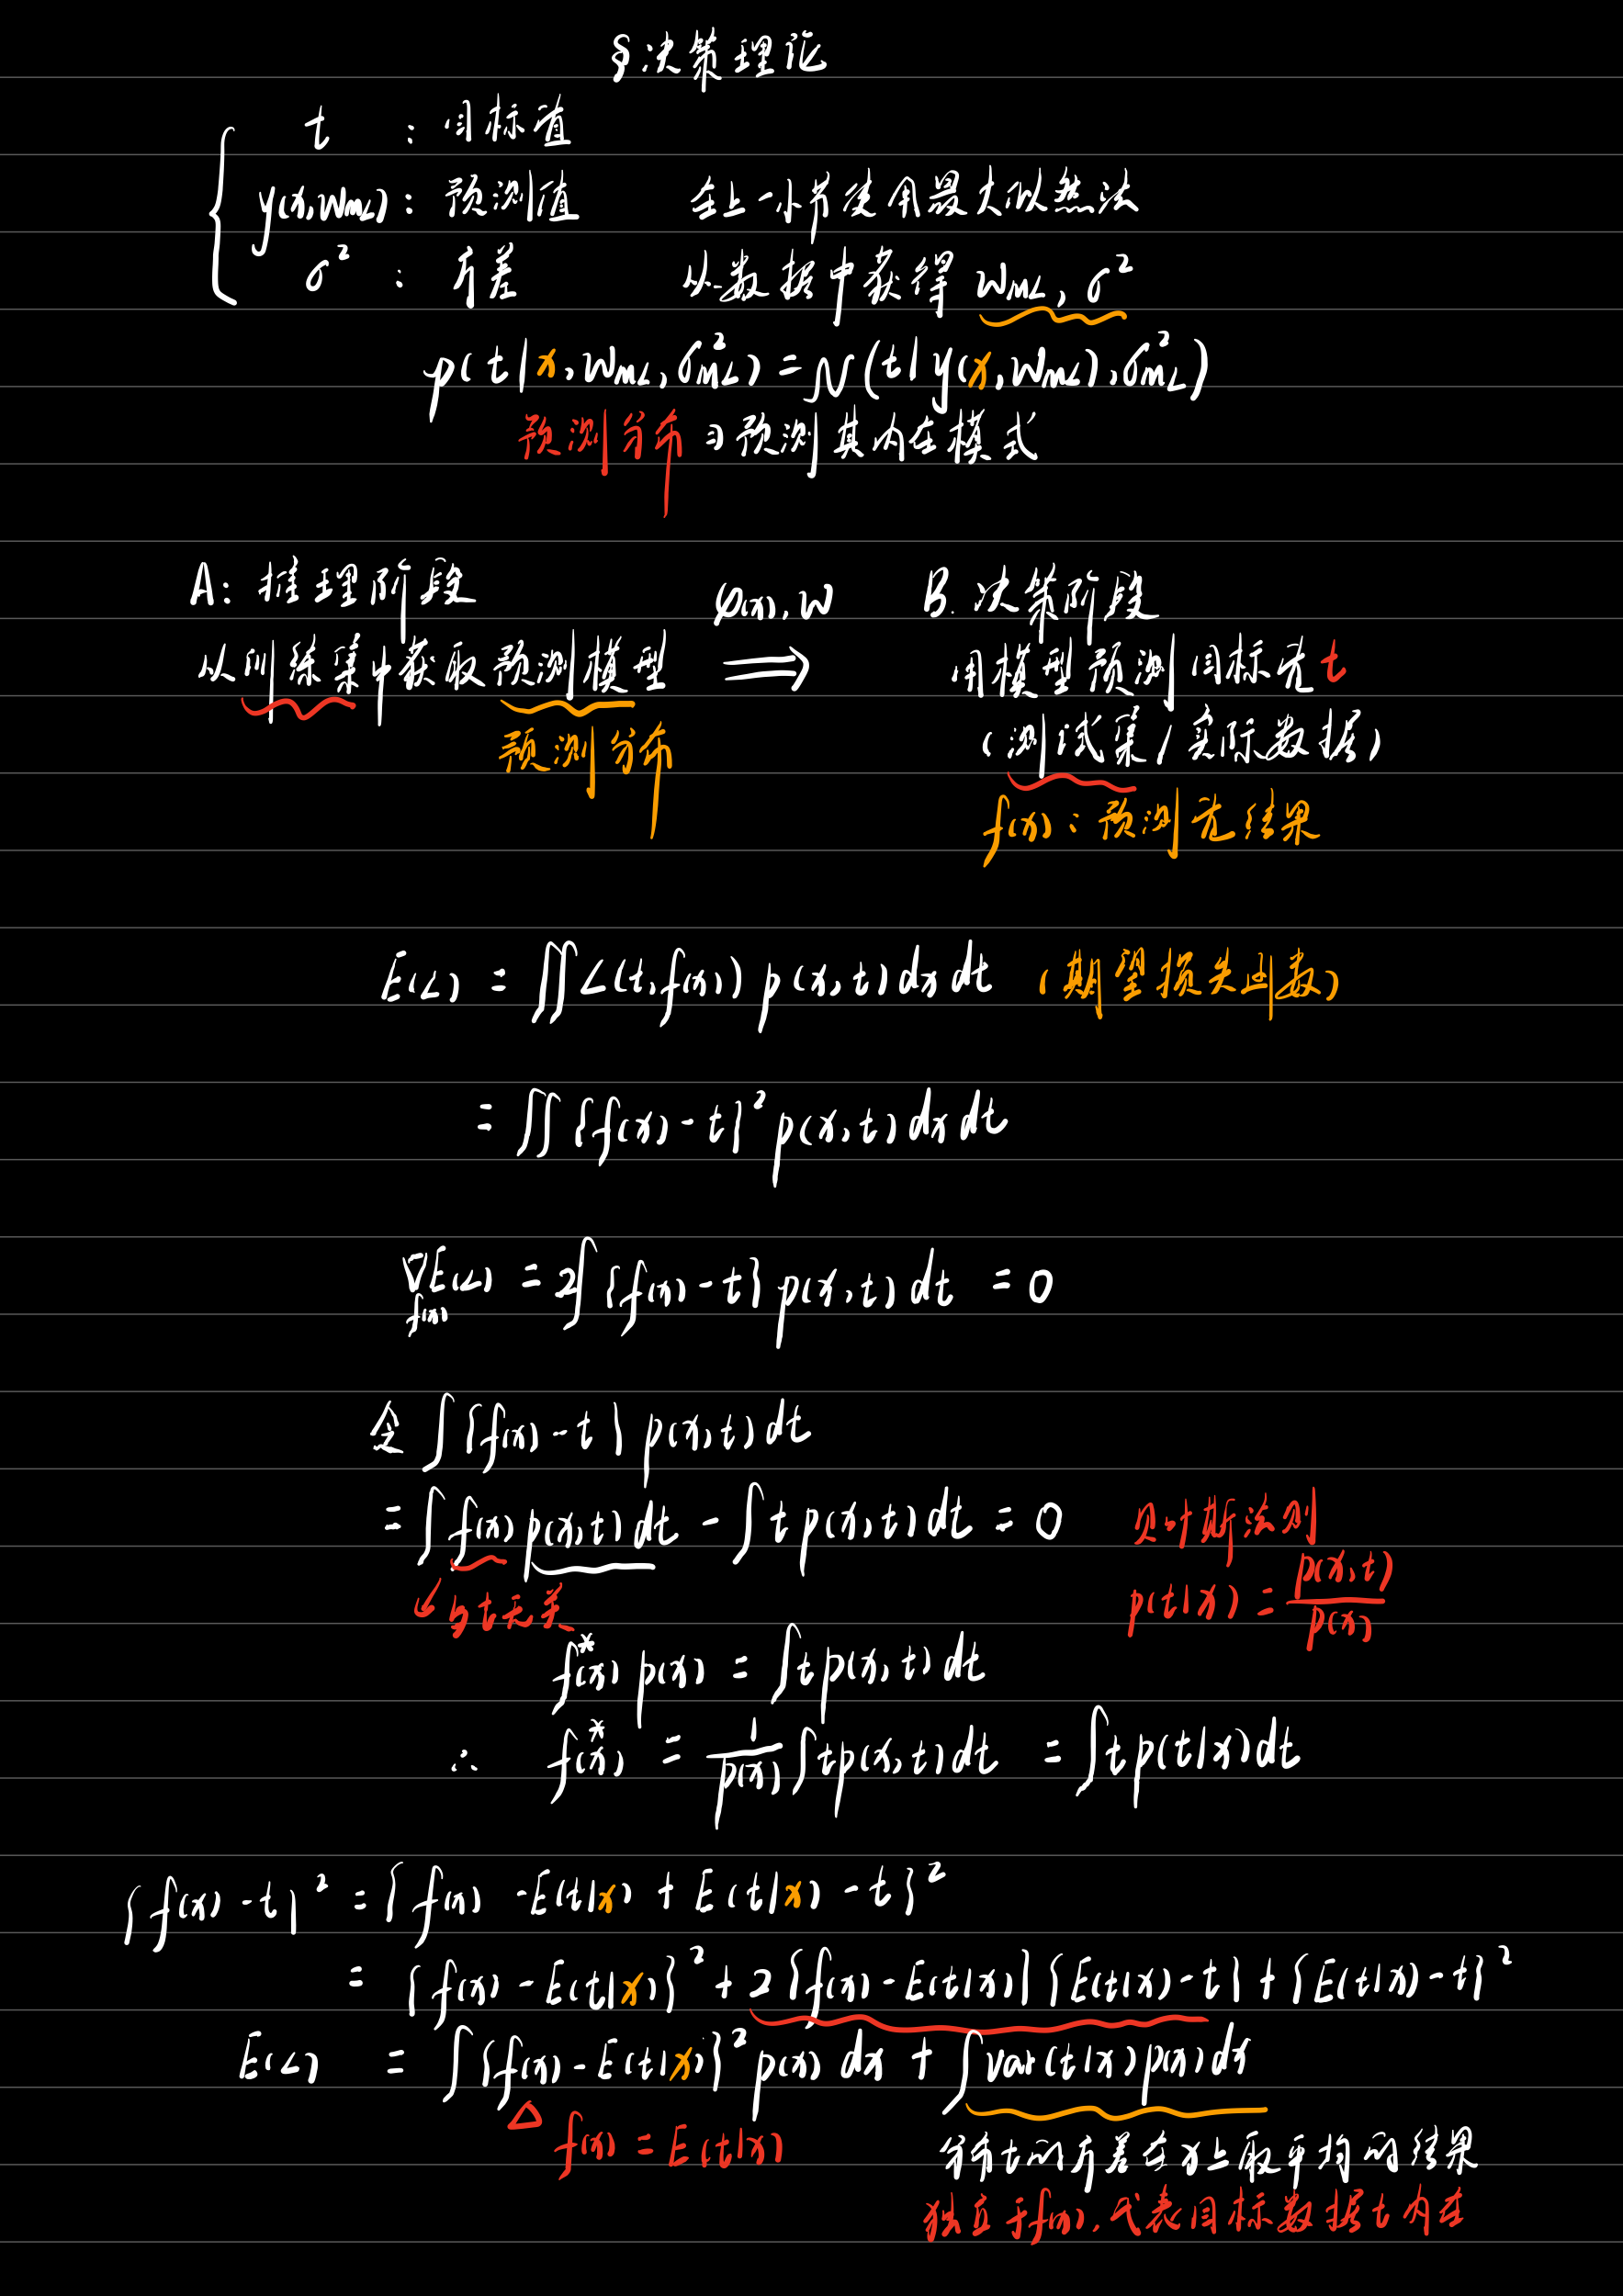 §决策理论
t : 目标值
y(x,wML) : 预测值 在上一小节使用最大似然法
σ² : 方差 从数据中获得 wML, σ²
p(t|x, wML, σ²ML) = N(t|y(x, wML), σ²ML)
预测分布 预测其内在模式
A: 推理阶段 φ(x), w B. 决策阶段
从训练集中获取预测模型 ⟹ 用模型预测目标 t
预测分布 (测试集/实际数据)
f(x) : 预测 结果
E(L) = ∬ L(t, f(x)) p(x,t) dx dt (期望损失函数)
= ∬ {f(x) - t}² p(x,t) dx dt
∇f(x) E(L) = 2∫ {f(x) - t} p(x,t) dt = 0
令 ∫ {f(x) - t} p(x,t) dt
= ∫ f(x) p(x,t) dt - ∫ t p(x,t) dt = 0 贝叶斯法则
↙ 与t无关 p(t|x) = p(x,t)/p(x)
f*(x) p(x) = ∫ t p(x,t) dt
∴ f*(x) = 1/p(x) ∫ t p(x,t) dt = ∫ t p(t|x) dt
{f(x) - t}² = {f(x) - E(t|x) + E(t|x) - t}²
= {f(x) - E(t|x)}² + 2{f(x) - E(t|x)}{E(t|x) - t} + {E(t|x) - t}²
E(L) = ∫ {f(x) - E(t|x)}² p(x) dx + ∫ var(t|x) p(x) dx
△ f(x) = E(t|x) 分布t的方差在x上取平均的结果
独立于f(x), 代表目标数据t内在